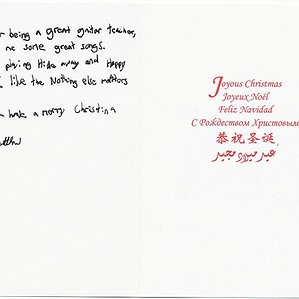 for being a great guitar teacher,
me some great songs.
playing Hide away and Happy
I like the Nothing else matters
have a merry Christina
Joyous Christmas
Joyeux Noël
Feliz Navidad
С Рождеством Христовым
恭祝圣诞
عيد ميلاد مجيد